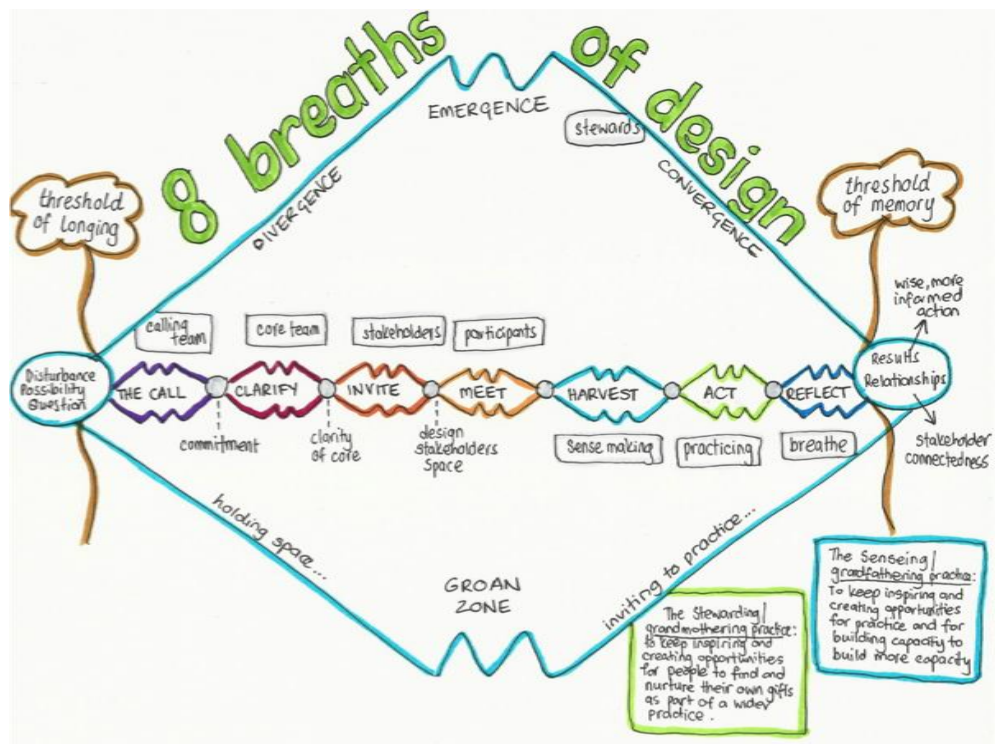 8 breaths of design
EMERGENCE
stewards
DIVERGENCE
CONVERGENCE
threshold
of longing
threshold
of memory
wise, more
informed
action
calling
team
core team
stakeholders
participants
Disturbance
Possibility
Question
THE CALL
CLARIFY
INVITE
MEET
HARVEST
ACT
REFLECT
Results
Relationships
commitment
clarity
of core
design
stakeholders
space
sense making
practicing
breathe
stakeholder
connectedness
holding space...
inviting to practice...
GROAN
ZONE
The Stewarding/
grandmothering practice:
to keep inspiring and
creating opportunities
for people to find and
nurture their own gifts
as part of a wider
practice.
The Senseing/
grandfathering practice:
To keep inspiring and
creating opportunities
for practice and for
building capacity to
build more capacity